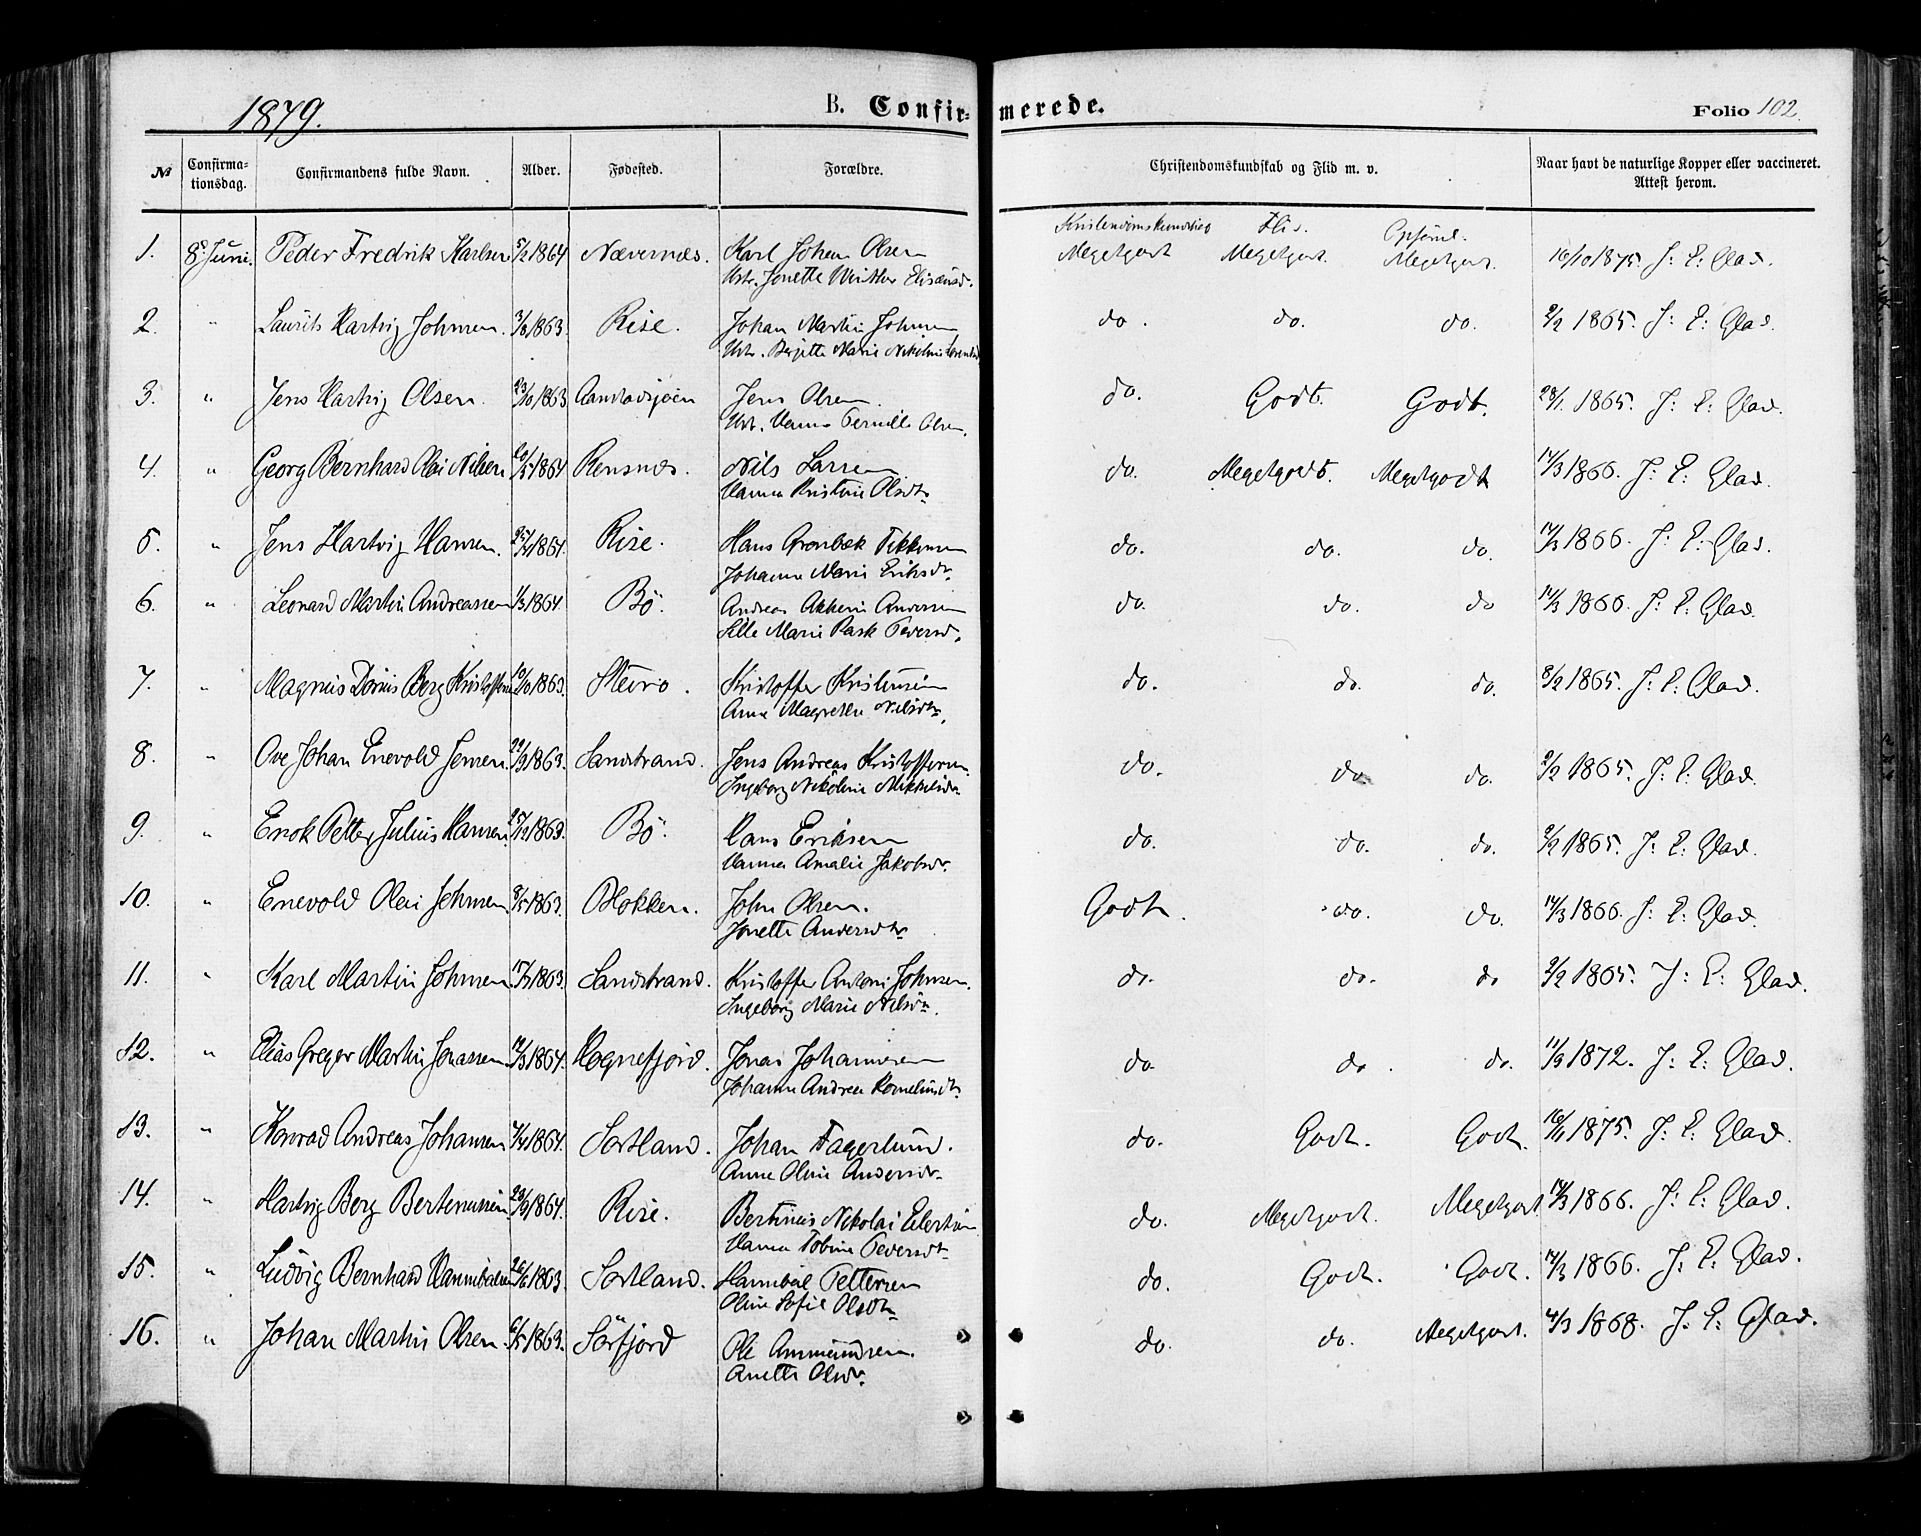 1879. B. Confir- merede. Folio 102.
№ Confirma-tionsdag. Confirmandens fulde Navn. Alder. Fødested. Forældre. Christendomskundskab og Flid m. v. Naar havt de naturlige Kopper eller vaccineret. Attest herom.
Kristendomskundskab Flid. Opførsel.
1. 8. Juni. Peder Fredrik Karlsen 5/2 1864 Nævernæs. Karl Johan Olsen Megetgodt Megetgodt. Megetgodt. 16/10 1875. J: E: Glad.
Hstr. Jonette
2. " Laurits Hartvig Johnsen. 3/8 1863. Rise. Johan Martin Johnsen do. do. do. 2/2 1865. J: E: Glad.
Hstr. Birgitte Marie
3. " Jens Hartvig Olsen. 23/10 1863 Jens Olsen. do. Godt. Godt. 28/1 1865. J: E: Glad.
Hstr. Hanna Pernille Olsen.
4. " Georg Bernhard Olai Nilsen 20/5 1864 Rensnæs. Nils Larsen do. Megetgodt. Megetgodt 14/3 1866. J: E: Glad.
Hanna Kristine Olsdtr
5. " Jens Hartvig Hansen. 25/4 1864. Rise. Hans Grønbek do. do. do. 14/3 1866. J: E: Glad.
Johanna Marie Eriksdr.
6. " Leonard Martin Andreassen 1/3 1864 Bö. Andreas Andersen do. do. do 14/3 1866. J: E: Glad.
Sille Marie Rask Pedersd.
7. " Magnus Dorius Berg Kristoffersen 10/10 1863. Steiro. Kristoffer Kristensen do. do. do. 8/2 1865. J: E: Glad.
Anne Margrethe Nilsdtr.
8. " Ove Johan Enevold Jensen. 22/9 1863. Sandstrand. Jens Andreas Kristoffersen. do. do. do. 2/2 1865. J: E: Glad.
Ingeborg Nikoline Mikkelsdr
9. " Enok Petter Julius Hansen. 25/12 1863. Bö. Hans Eriksen do. do. do. 2/2 1865. J: E: Glad.
Hanna Amalie Jakobsdr.
10. " Enevold Olai Johnsen 8/5 1863. Blokken. John Olsen. Godt. do. do. 14/3 1866. J: E: Glad.
Jonette Andersdtr
11. " Karl Martin Johnsen 17/7 1863. Sandstrand. Kristoffer Antoni Johnsen. do. do. do 2/2 1865. J: E: Glad.
Ingeborg Marie Nilsdtr.
12. " Elias Greger Martin Jonassen 14/3 1864. Hognfjord. Jonas Johannesen do. do. do. 11/9 1872. J: E: Glad.
Johanna Andrea Kornelius dtr.
13. " Konrad Andreas Johansen 7/4 1864. Sortland. Johan Fagerlund. do. Godt. Godt. 16/1 1875. J: E: Glad.
Anne Oline Andersdr.
14. " Hartvig Berg Bertinussen 23/6 1864. Rise. Bertinus Nikolai Eilertsen do. Megetgodt. Megetgodt. 14/3 1866. J: E: Glad.
Hanna Tobine Pedersdtr
15. " Ludvig Bernhard Hannibalsen 26/6 1863. Sortland. Hannibal Pettersen do. Godt. Godt. 14/3 1866. J: E: Glad.
Oline Sofie Olsdtr
16. " Johan Martin Olsen. 6/5 1863. Sörfjord Ole Ammundsen. do. do. Megetgodt. 4/3 1868. J: E: Glad.
Anette Olsdr.